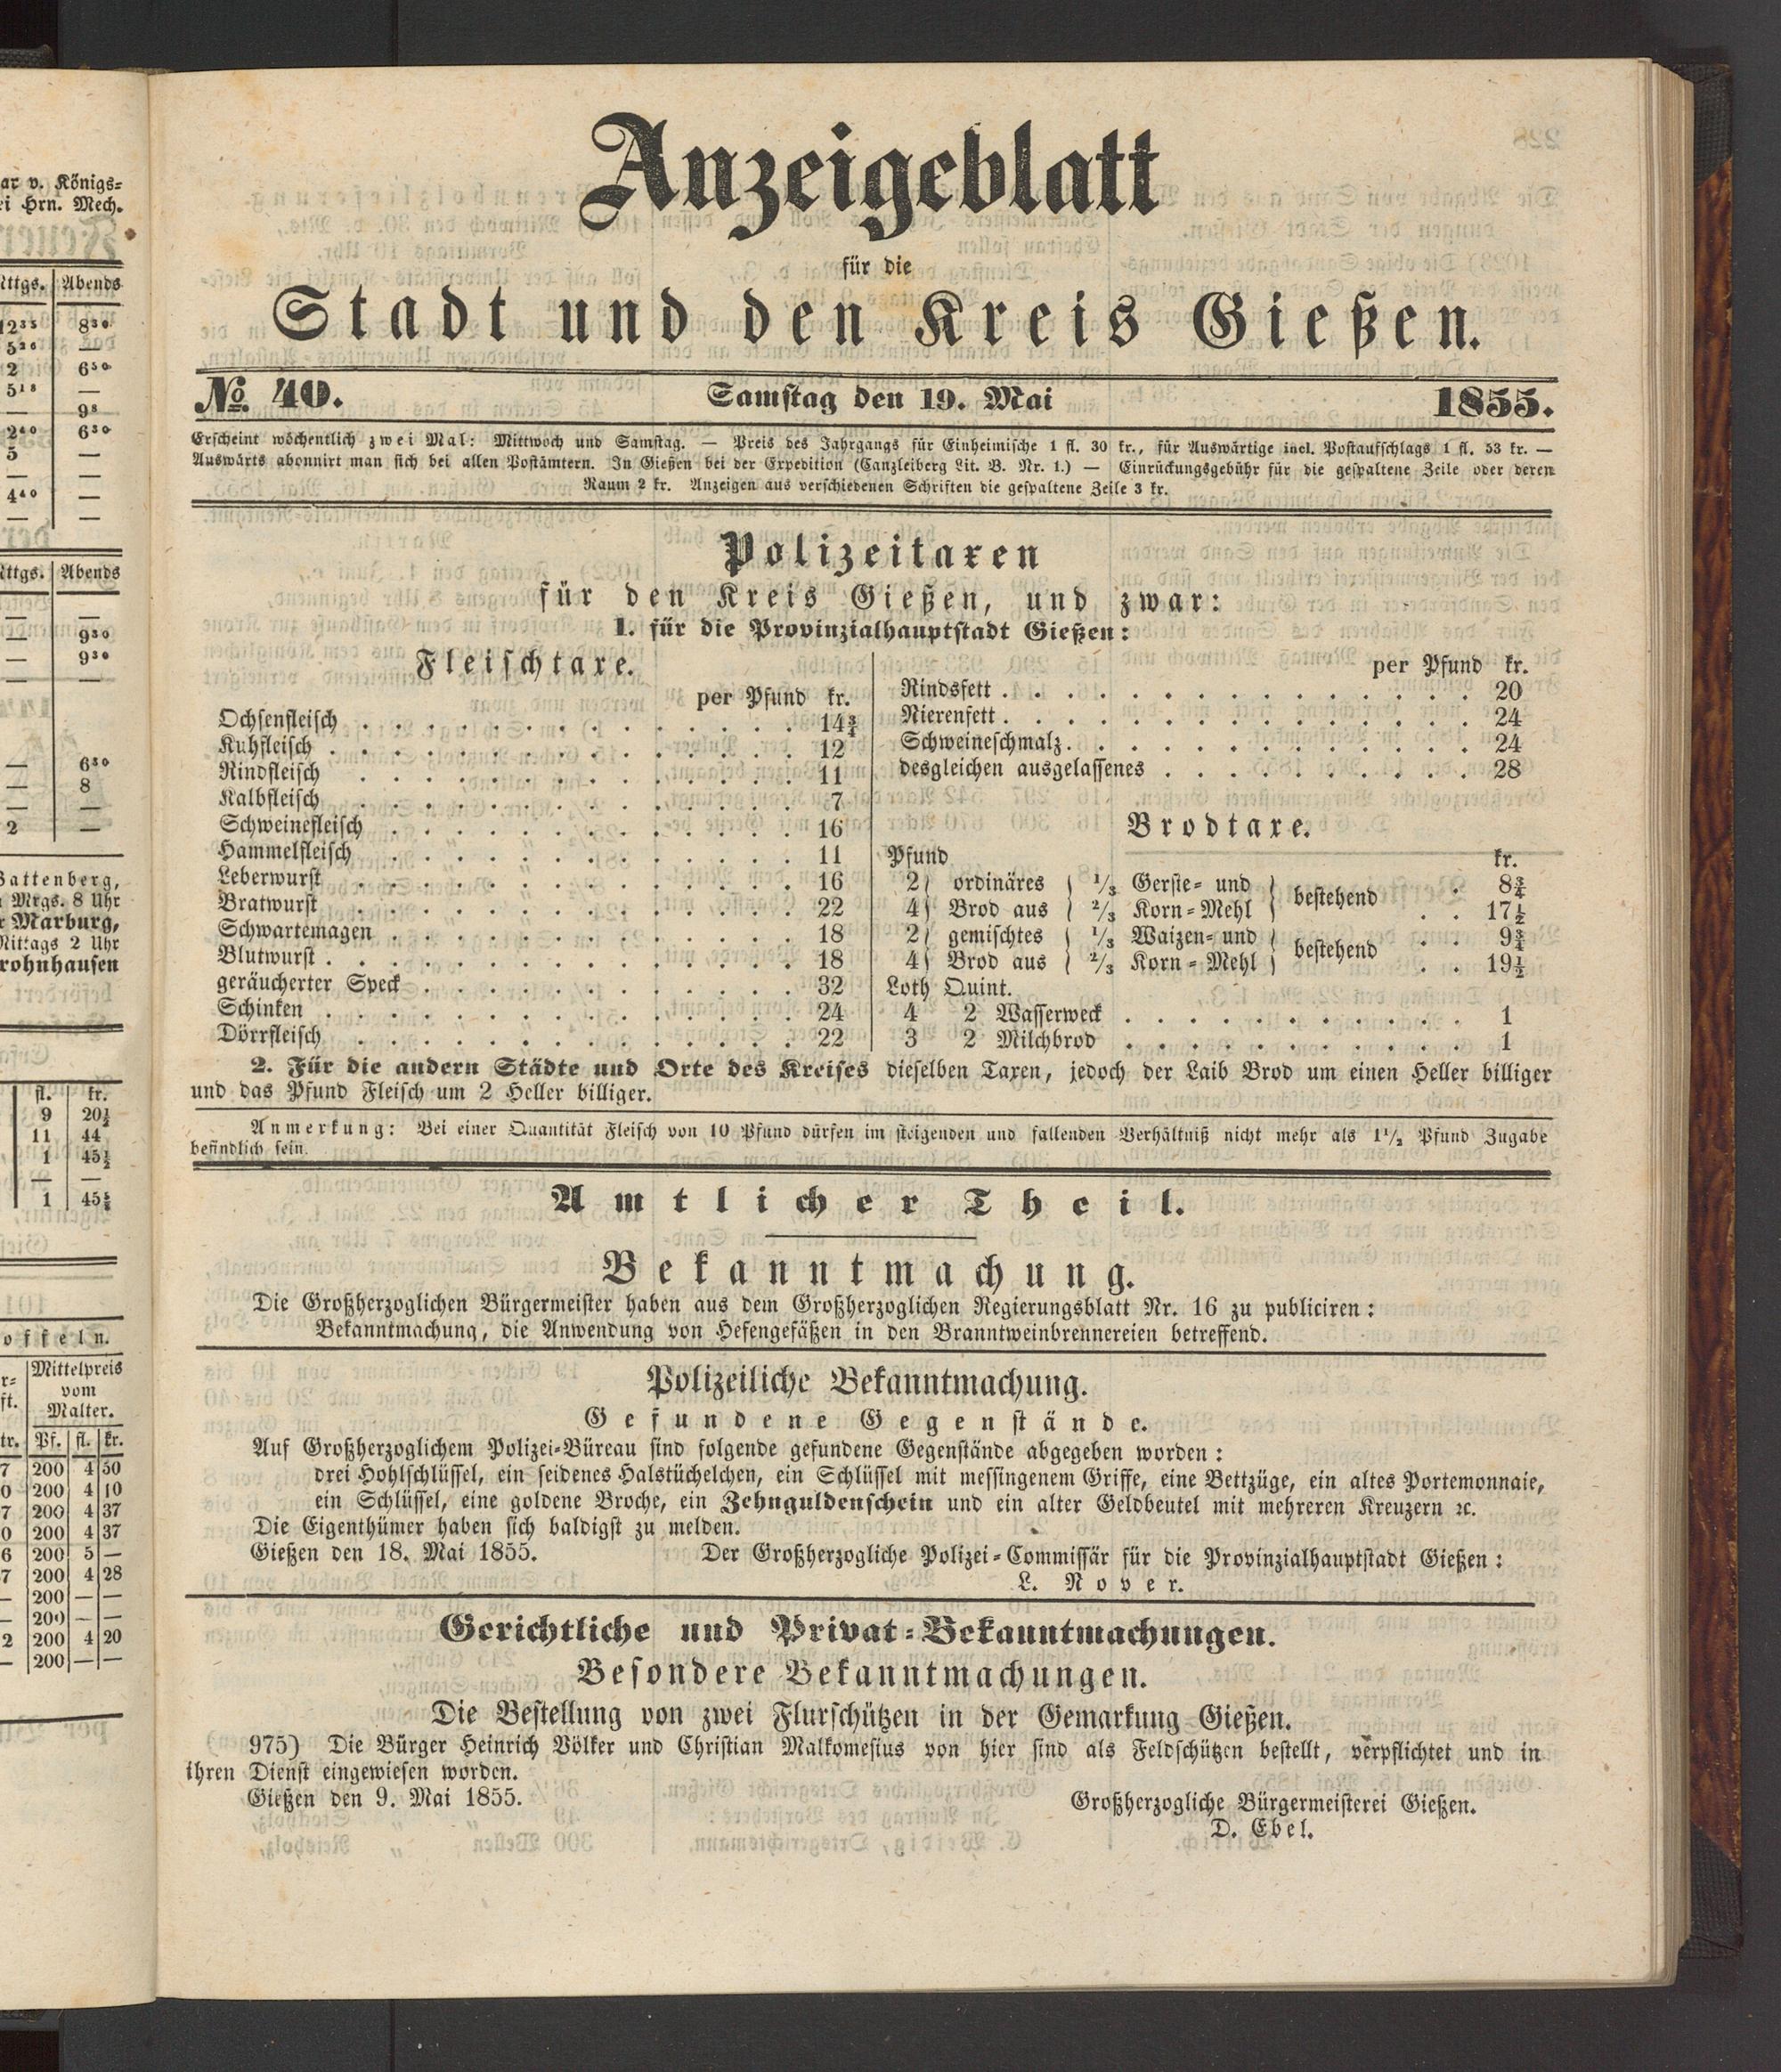 ar v. Königs=
ei Hrn. Mech.
ttgs. Abends
12³⁵ 8³⁰
5²⁶ —
2 6⁵⁰
5¹⁸ —
— 9⁸
2⁴⁰ 6³⁰
5 —
— —
4⁴⁰ —
— —
ttgs. Abends
— —
— 9³⁰
— 9³⁰
— —
— 6⁵⁰
— 8
— —
2 —
Battenberg,
Mrgs. 8 Uhr
r Marburg,
Mittags 2 Uhr
rohnhausen
fl. kr.
9 20½
11 44
1 45½
— —
1 45½
offeln.
Mittelpreis
vom
Malter.
tr. Pf. fl. kr.
7 200 4 50
0 200 4 10
7 200 4 37
0 200 4 37
6 200 5 —
7 200 4 28
— 200 — —
— 200 — —
2 200 4 20
— 200 — —
Anzeigeblatt
für die
Stadt und den Kreis Gießen.
No. 40. Samstag den 19. Mai 1855.
Erscheint wöchentlich zwei Mal: Mittwoch und Samstag. — Preis des Jahrgangs für Einheimische 1 fl. 30 kr., für Auswärtige incl. Postaufschlags 1 fl. 53 kr. —
Auswärts abonnirt man sich bei allen Postämtern. In Gießen bei der Expedition (Canzleiberg Lit. B. Nr. 1.) — Einrückungsgebühr für die gespaltene Zeile oder deren
Raum 2 kr. Anzeigen aus verschiedenen Schriften die gespaltene Zeile 3 kr.
Polizeitaxen
für den Kreis Gießen, und zwar:
1. für die Provinzialhauptstadt Gießen:
Fleischtaxe.
per Pfund kr.
Ochsenfleisch . . . . . . . . . . . . . . 14¾
Kuhfleisch . . . . . . . . . . . . . . 12
Rindfleisch . . . . . . . . . . . . . . 11
Kalbfleisch . . . . . . . . . . . . . . 7
Schweinefleisch . . . . . . . . . . . . . 16
Hammelfleisch . . . . . . . . . . . . . 11
Leberwurst . . . . . . . . . . . . . . 16
Bratwurst . . . . . . . . . . . . . . 22
Schwartemagen . . . . . . . . . . . . . 18
Blutwurst . . . . . . . . . . . . . . 18
geräucherter Speck . . . . . . . . . . . . 32
Schinken . . . . . . . . . . . . . . 24
Dörrfleisch . . . . . . . . . . . . . . 22
per Pfund kr.
Rindsfett . . . . . . . . . . . . . . 20
Nierenfett . . . . . . . . . . . . . . 24
Schweineschmalz . . . . . . . . . . . . . 24
desgleichen ausgelassenes . . . . . . . . . . 28
Brodtaxe.
Pfund kr.
2) ordinäres ( ⅓ Gerste= und ) bestehend . 8¾
4) Brod aus ( ⅔ Korn=Mehl ) . . 17½
2) gemischtes ( ⅓ Waizen= und ) bestehend . . 9¾
4) Brod aus ( ⅔ Korn=Mehl ) . . 19½
Loth Quint.
4 2 Wasserweck . . . . . . . . . . . 1
3 2 Milchbrod . . . . . . . . . . . 1
2. Für die andern Städte und Orte des Kreises dieselben Taxen, jedoch der Laib Brod um einen Heller billiger
und das Pfund Fleisch um 2 Heller billiger.
Anmerkung: Bei einer Quantität Fleisch von 10 Pfund dürfen im steigenden und fallenden Verhältniß nicht mehr als 1½ Pfund Zugabe
befindlich sein.
Amtlicher Theil.
Bekanntmachung.
Die Großherzoglichen Bürgermeister haben aus dem Großherzoglichen Regierungsblatt Nr. 16 zu publiciren:
Bekanntmachung, die Anwendung von Hefengefäßen in den Branntweinbrennereien betreffend.
Polizeiliche Bekanntmachung.
Gefundene Gegenstände.
Auf Großherzoglichem Polizei=Büreau sind folgende gefundene Gegenstände abgegeben worden:
drei Hohlschlüssel, ein seidenes Halstüchelchen, ein Schlüssel mit messingenem Griffe, eine Bettzüge, ein altes Portemonnaie,
ein Schlüssel, eine goldene Broche, ein Zehnguldenschein und ein alter Geldbeutel mit mehreren Kreuzern ꝛc.
Die Eigenthümer haben sich baldigst zu melden.
Gießen den 18. Mai 1855. Der Großherzogliche Polizei=Commissär für die Provinzialhauptstadt Gießen:
L. Nover.
Gerichtliche und Privat=Bekanntmachungen.
Besondere Bekanntmachungen.
Die Bestellung von zwei Flurschützen in der Gemarkung Gießen.
975) Die Bürger Heinrich Völker und Christian Malkomesius von hier sind als Feldschützen bestellt, verpflichtet und in
ihren Dienst eingewiesen worden.
Gießen den 9. Mai 1855. Großherzogliche Bürgermeisterei Gießen.
D. Ebel.